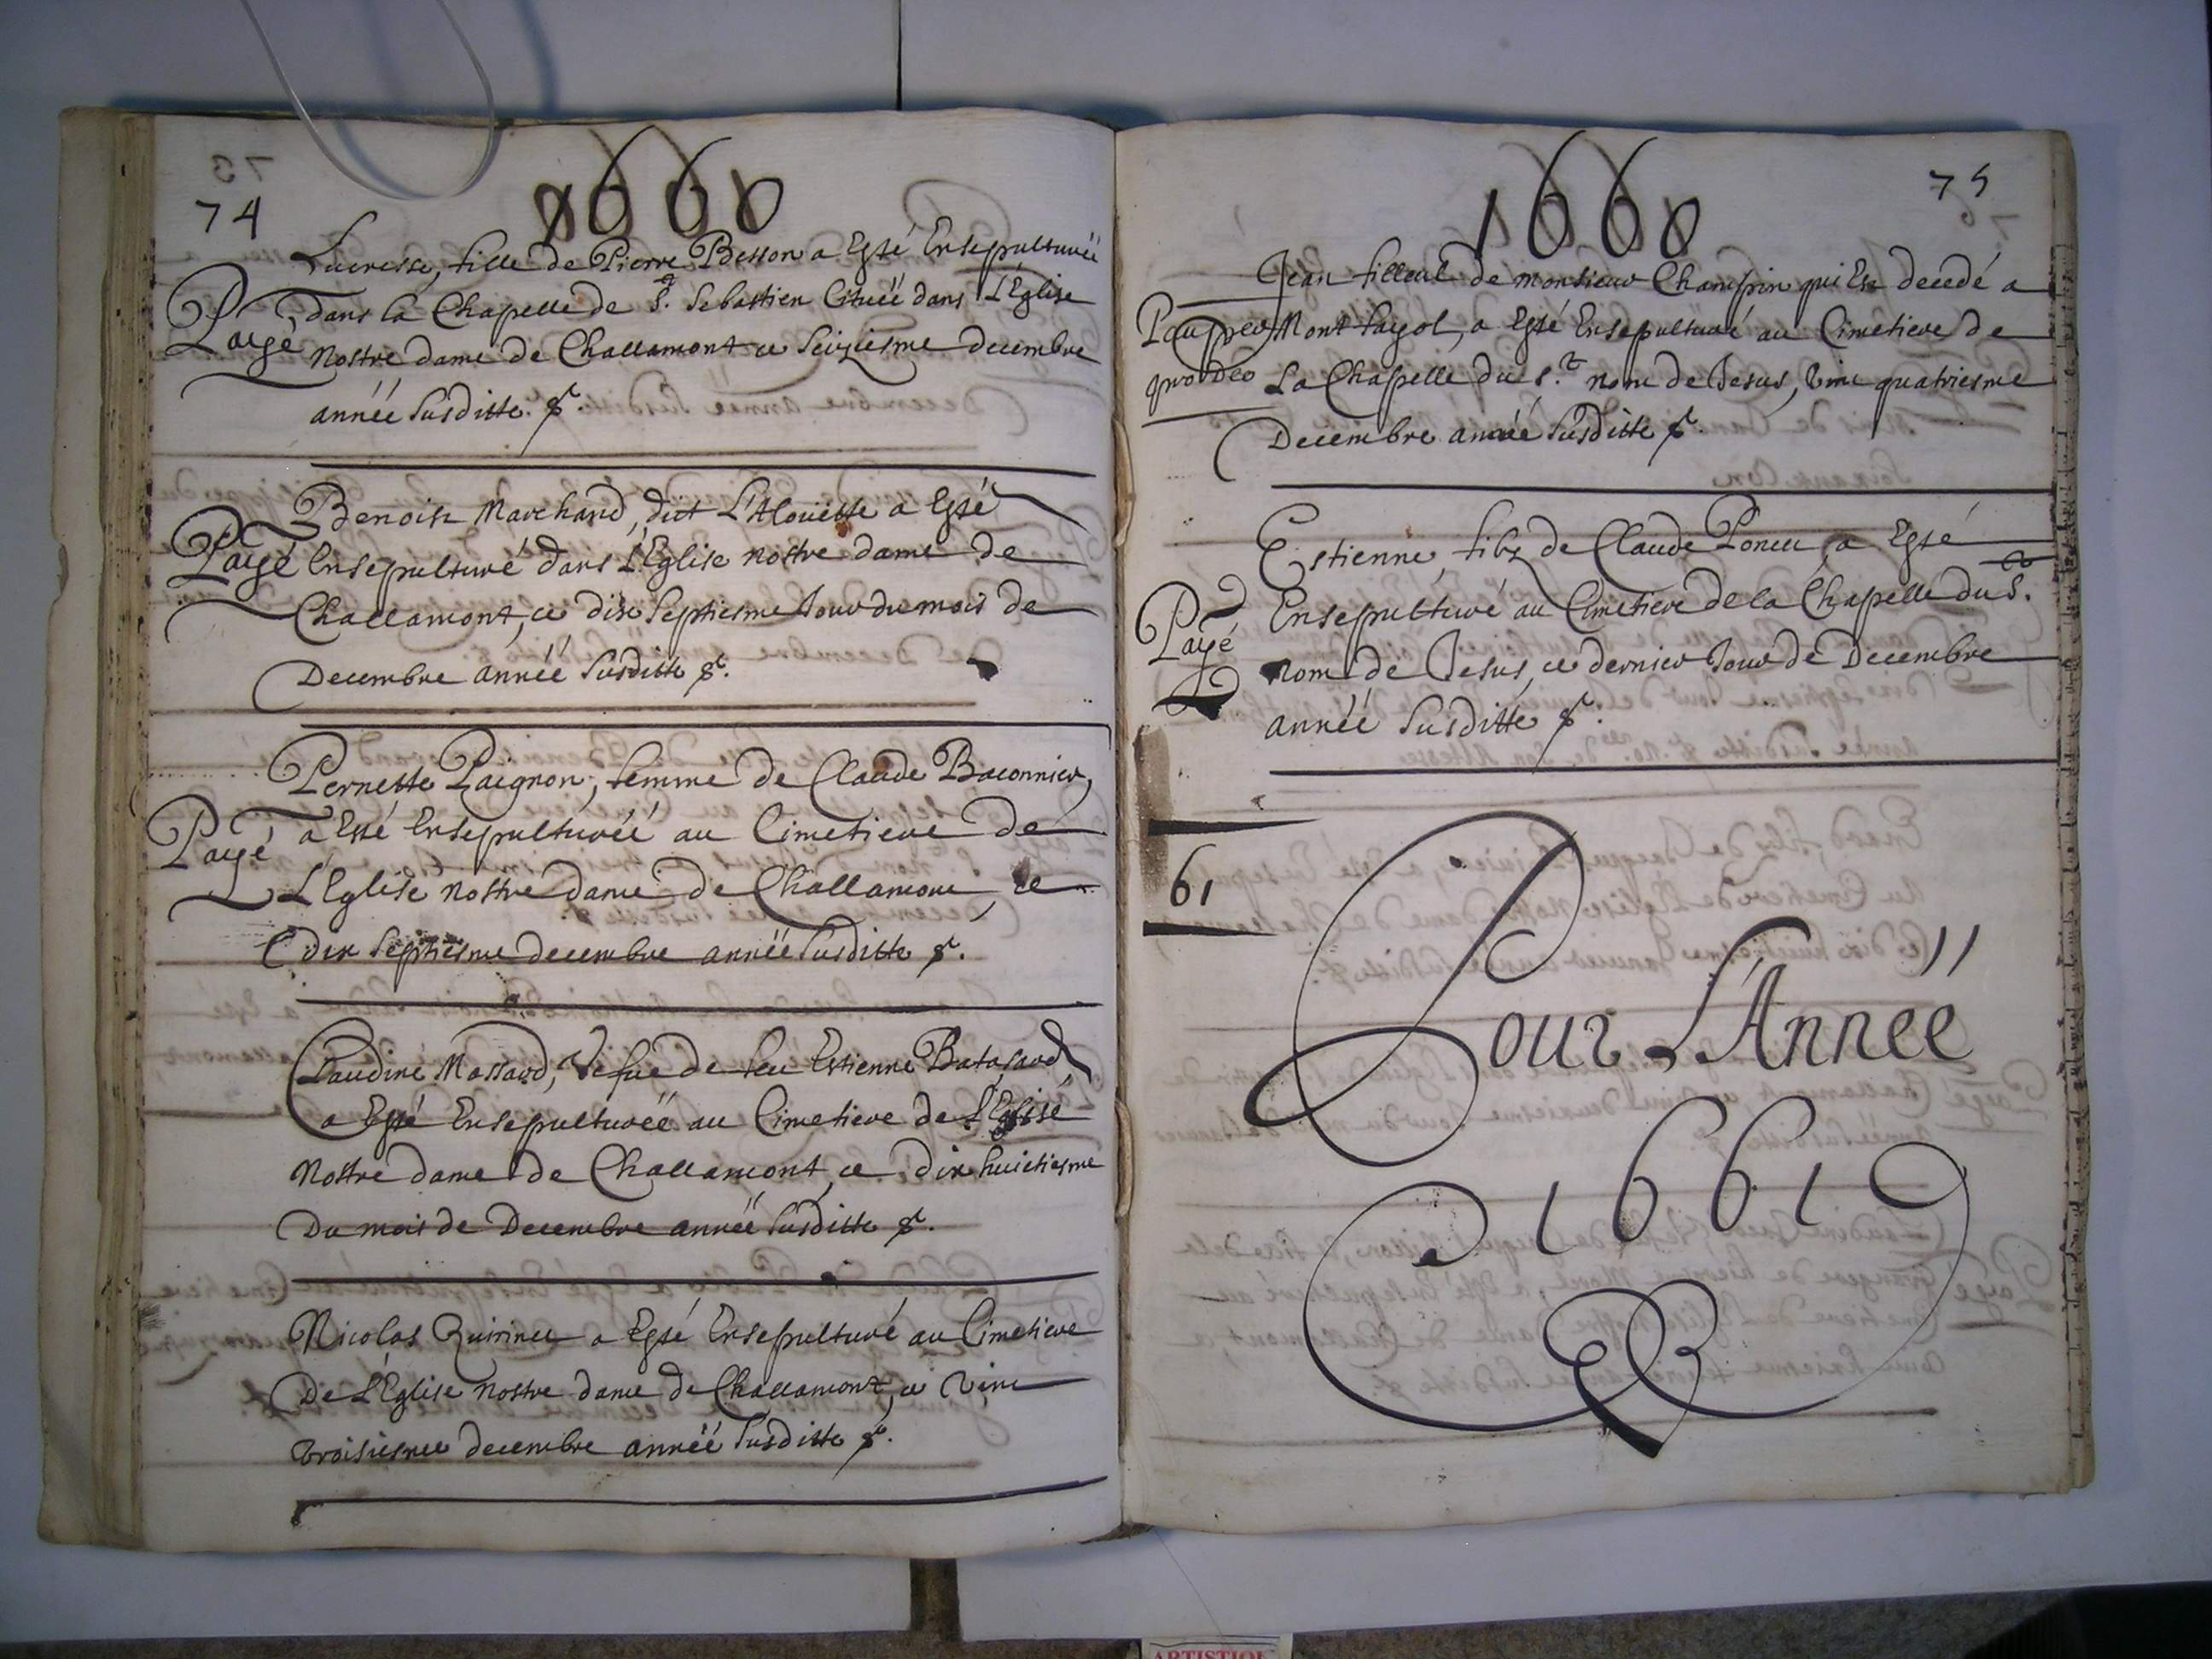 74
1660
Lucresse, fille de Pierre Besson a Esté Ensepulturéé
dans la Chapelle de St. Sebastien Cituéé dans L'Eglise
Payé
Nostre dame de Challamont ce Seiziesme decembre
annéé Susditte &.
Benoist Marchand, dict L'Alouette a Esté
Payé
Ensepulturé dans L'Eglise nostre dame de
Challamont, ce dix Septiesme Jour du mois de
Decembre annéé Susditte &.
Pernette Paignon, femme de Claude Baconnier,
Payé
a Esté Ensepulturéé au Cimetiere de
L'Eglise nostre dame de Challamont, ce
dix Septiesme decembre annéé Susditte &.
Claudine Massard, Vefue de feu Estienne Batasard
a Esté Ensepulturéé au Cimetiere de L'Eglise
Nostre dame de Challamont, ce dix huictiesme
Du mois de Decembre annéé Susditte &.
Nicolas a Esté Ensepulturé au Cimetiere
De L'Eglise nostre dame de Challamont, ce Vint
troisiesme decembre annéé Susditte &.
75
1660
Jean filleul de monsieur Champin qui Est decedé a
Pauper
Mont fayol, a Esté Ensepulturé au Cimetiere de
pro Deo
La Chapelle du St. nom de Jesus, Vint quatriesme
Decembre annéé Susditte &.
Estienne, filz de Claude Poncet, a Esté
Payé
Ensepulturé au Cimetiere de la Chapelle du St.
nom de Jesus, ce dernier Jour de Decembre
annéé Susditte &.
61
Pour L'Annéé
1661
ARTISTIQUE